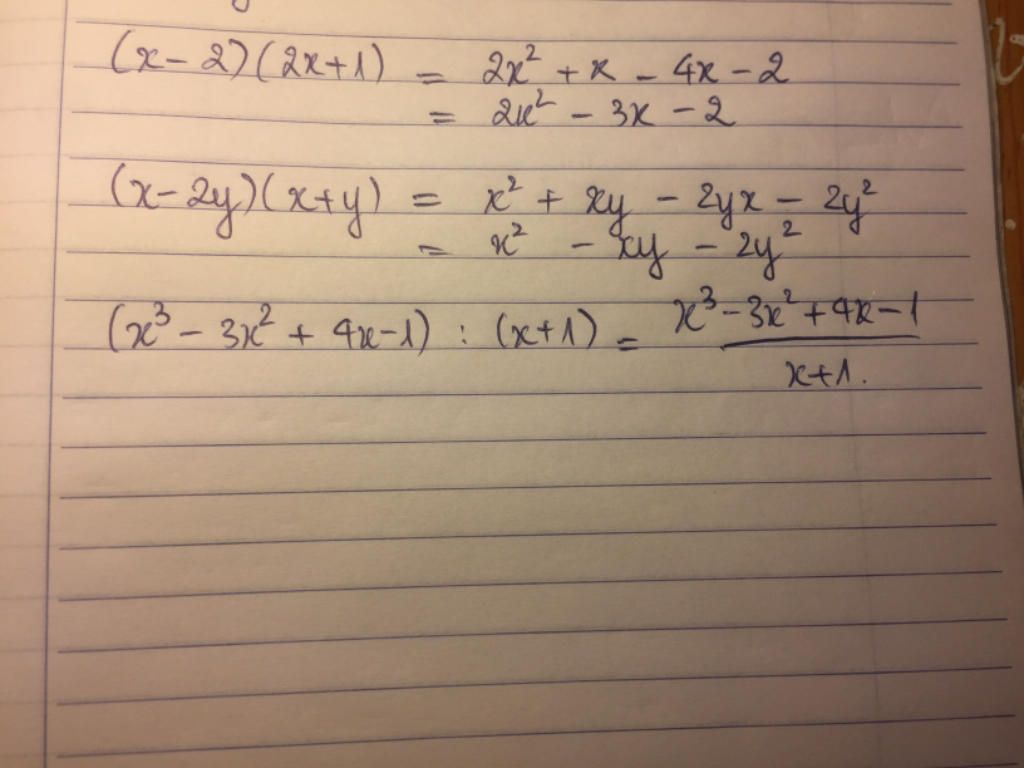 (x-2)(2x+1) = 2x² + x - 4x - 2
= 2x² - 3x - 2
(x-2y)(x+y) = x² + xy - 2yx - 2y²
= x² - xy - 2y²
(x³ - 3x² + 4x-1) : (x+1) = x³-3x²+4x-1
x+1.